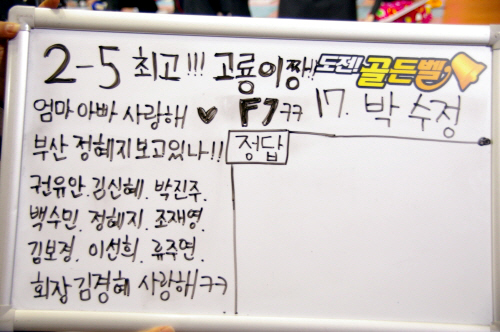 2-5 최고!!! 고룡이짱!!
도전! 골든벨
엄마 아빠 사랑해 ♥ F7ㅋㅋ
17. 박수정
부산 정혜지보고있나!!
정답
권유안. 김신혜. 박진주.
백수민. 정혜지. 조재영.
김보경. 이선희. 류주연.
회장 김경혜 사랑해ㅋㅋ